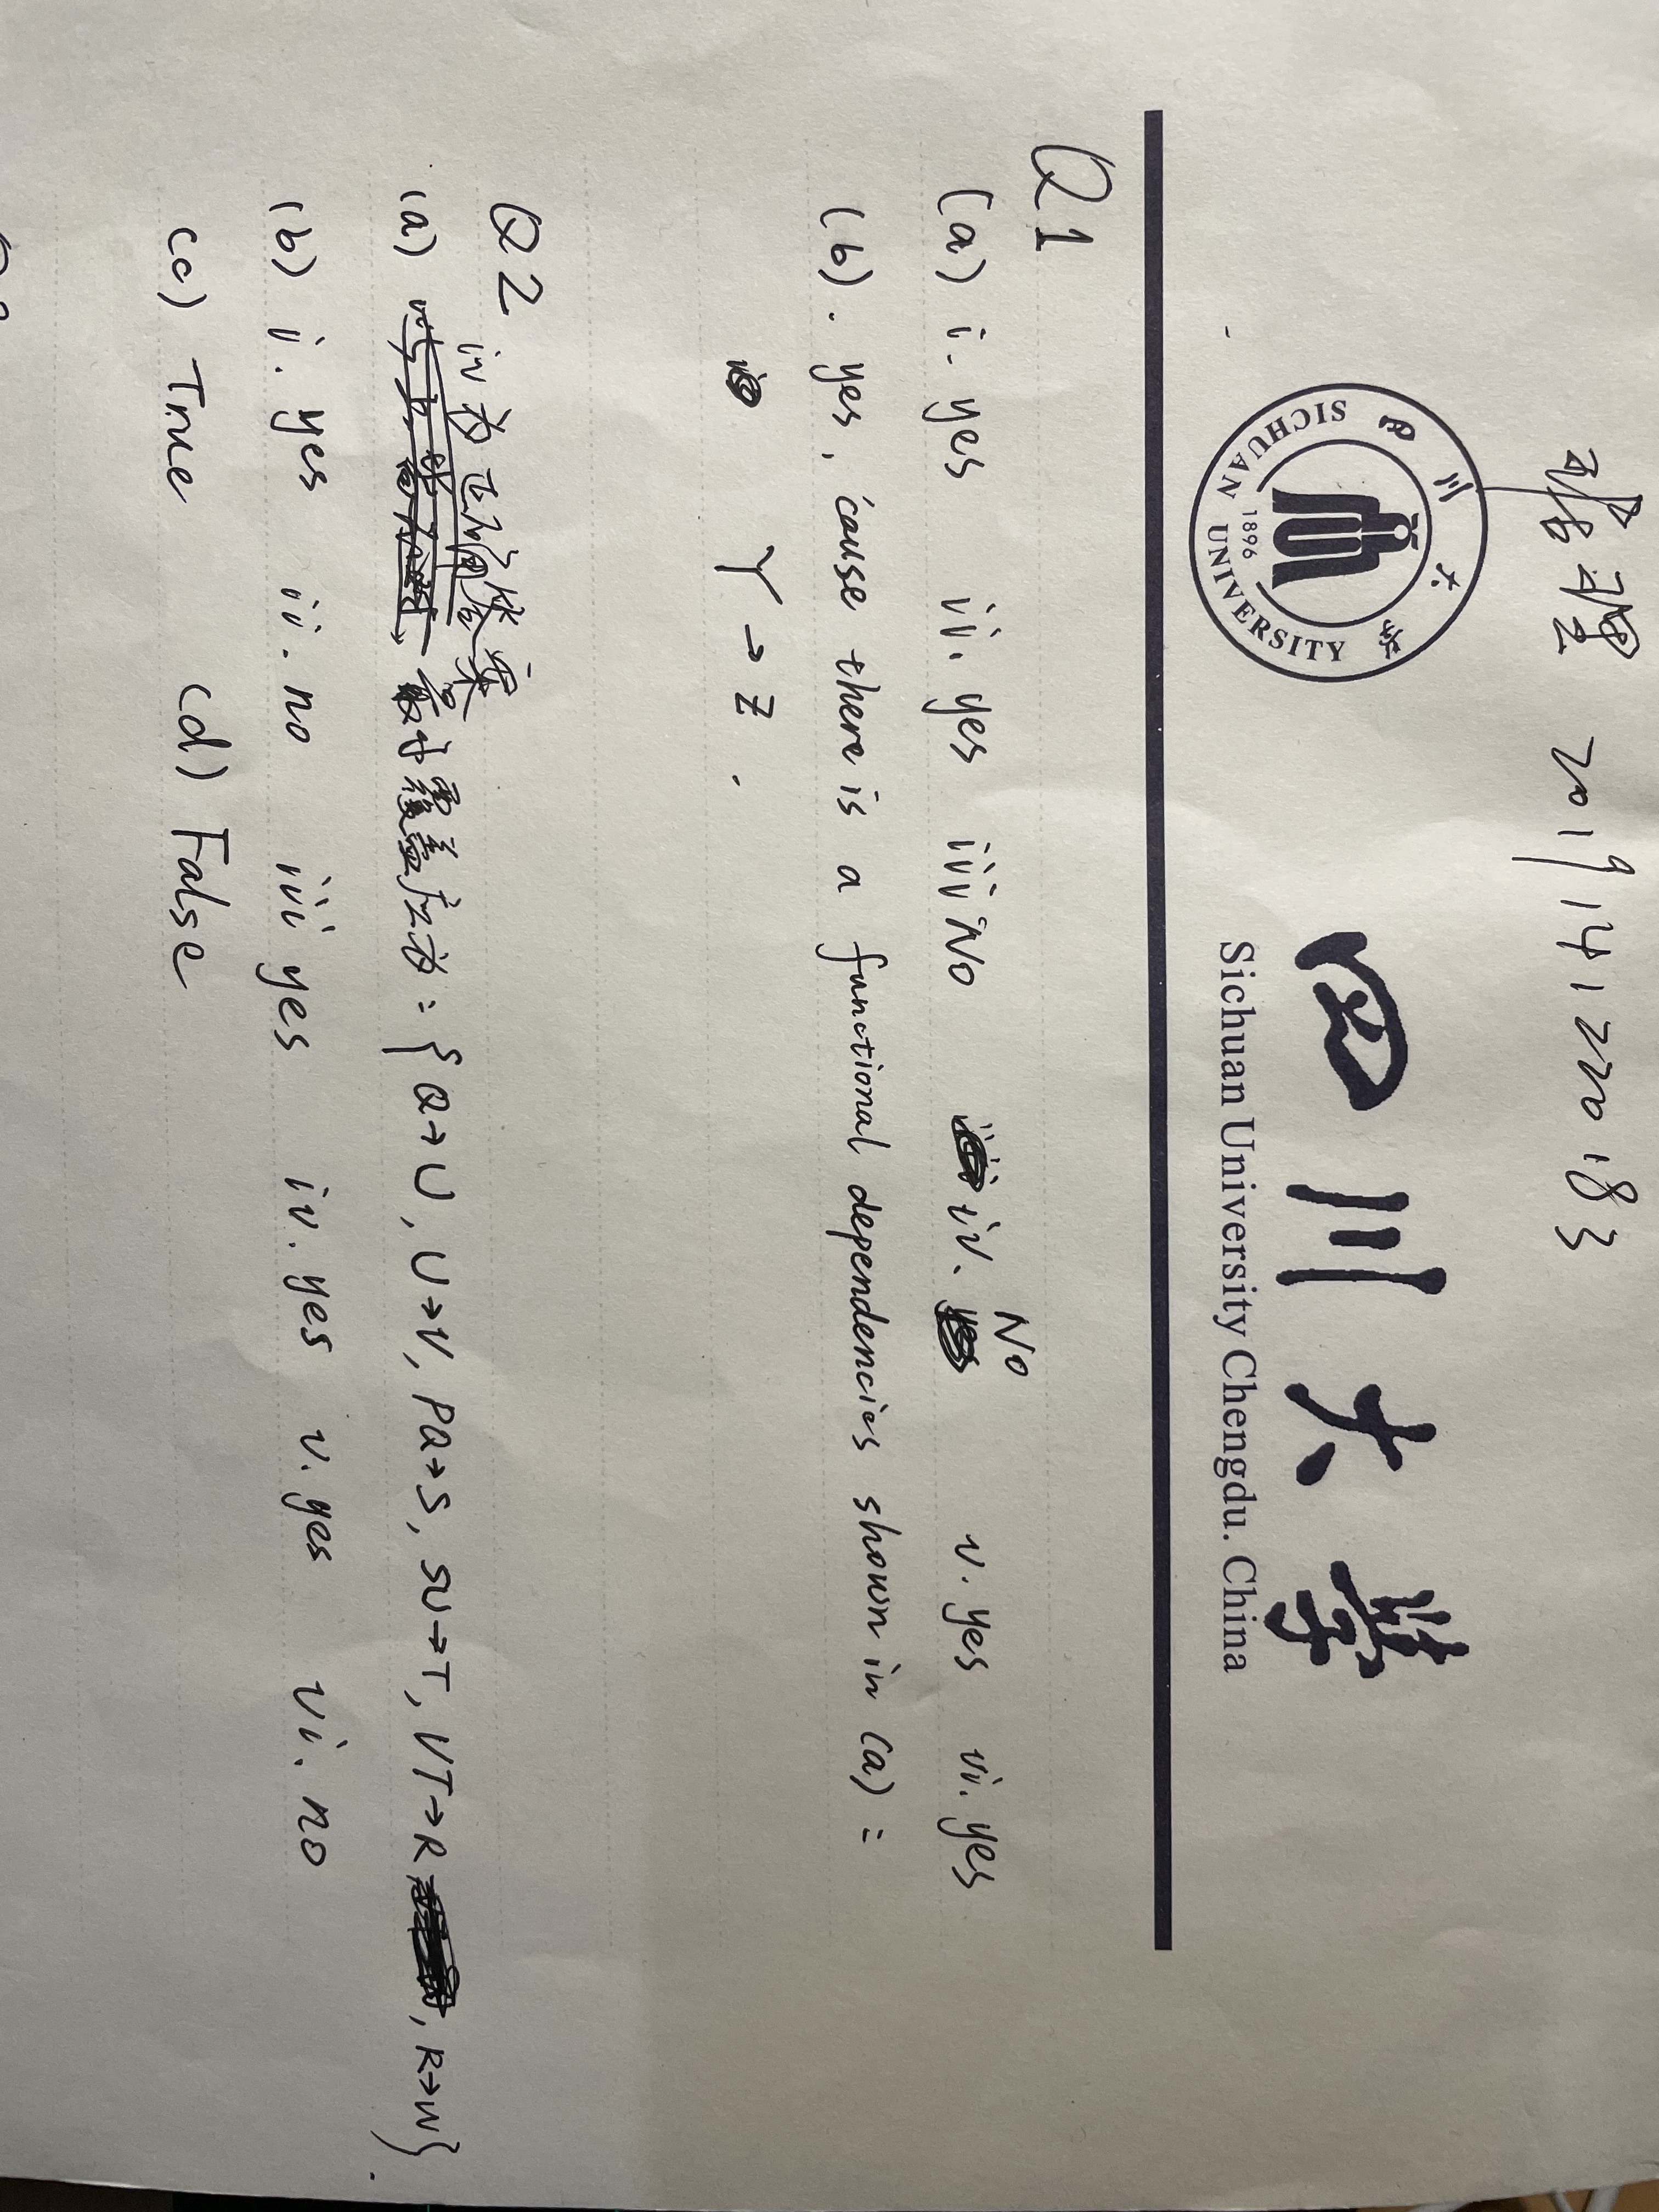 琚理 2019141220183
四川大学
SICHUAN UNIVERSITY
1896
四川大學
Sichuan University Chengdu. China
Q1
(a) i. yes ii. yes iii No iv. No v. yes vi. yes
(b). yes, 'cause there is a functional dependencies shown in (a) :
Y → Z .
Q2
iv为正确答案
(a) 最小覆盖应为:{ Q→U, U→V, PQ→S, SU→T, VT→R, R→W}.
(b) i. yes ii. no iii yes iv. yes v. yes vi. no
(c) True (d) False